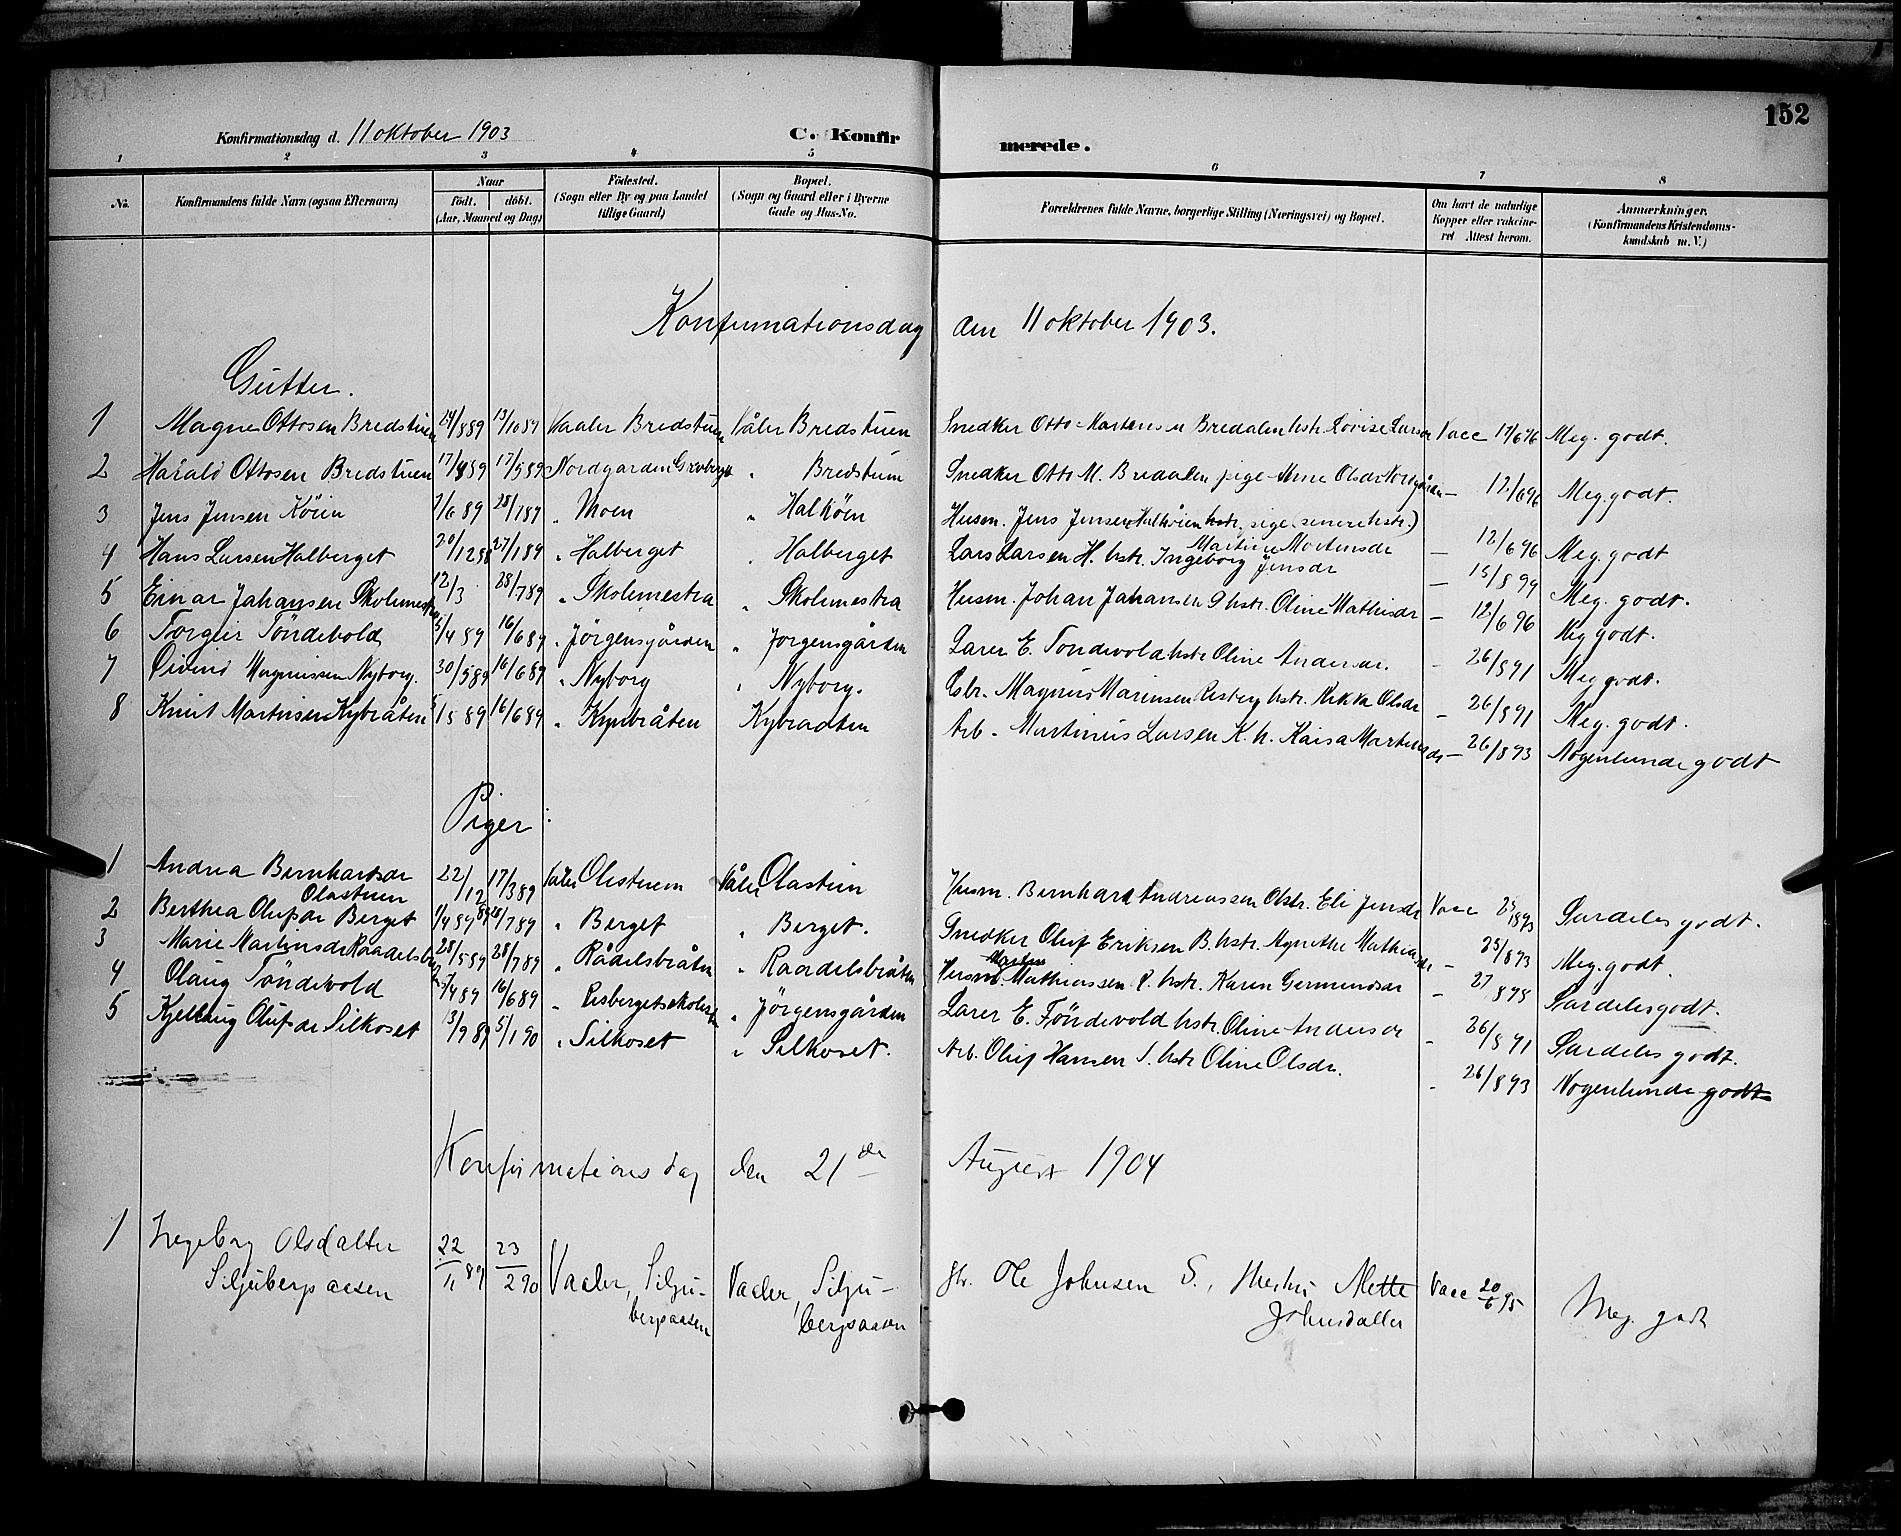 152
Konfirmationsdag d. 11 oktober 1903 C. Konfir merede.
1 2 3 4 5 6 7 8
No. Konfirmandens fulde Navn (ogsaa Efternavn) Naar födt. döbt. (Aar, Maaned og Dag) Födested. (Sogn eller By og paa Landet tillige Gaard) Bopæl. (Sogn og Gaard eller i Byerne Gade og Hus-No. Forældrenes fulde Navne, borgerlige Stilling (Næringsvei) og Bopæl. Om havt de naturlige Kopper eller vakcineret Attest herom. Anmærkninger. (Konfirmandens Kristendomskundskab m. V.)
Konfirmationsdag den 11 oktober 1903.
Gutter.
1 Magne Ottosen Bredstuen 24/889 13/1089 Vaaler Bredstuen Våler Bredstuen Snedker Otto Martensen Bredalen hstr. Lovise Larsdr Vacc 17/696 Meg. godt.
2 Harald Ottosen Bredstuen 17/489 17/589 Nordgarden Gravberget " Bredstuen Snedker Otto M. Bredalen pige Anne Olsdr Nordgården – 12/696 Meg. godt.
3 Jens Jensen Köien 7/689 28/789 " Moen " Halköen Husm. Jens Jensen Halköien hstr. pige (senere hstr.) Martine Mortensdr – 12/696 Meg. godt
4 Hans Larsen Halberget 20/1288 27/189 " Halberget " Halberget Lars Larsen H. hstr. Ingeborg Jensdr – 15/899 Meg. godt.
5 Einar Johansen Skolemestra 12/3 28/789 " Skolemestra " Skolemestra Husm. Johan Johansen S hstr. Oline Mathisdr – 12/696 Meg godt.
6 Torgeir Töndevold 5/489 16/689 " Jörgensgården " Jorgensgården Lærer E. Tondevold hstr Oline Andersdr. – 26/891 Meg godt.
7 Öivind Magnussen Nyborg. 30/589 16/689 " Nyborg " Nyborg. Gbr. Magnus Marinsen Risberg hstr. Rikka Olsdr – 26/891 Meg. godt.
8 Knut Martinsen Kybråten 5/589 16/689 " Kynbråten Kybraaten Arb. Martinus Larsen K. h. Kaisa Martinsdr – 26/893 Nogenlunde godt
Piger:
1 Andrea Bernhardsdr Olastuen 22/1288 17/389 Våler Olastuen Våler Olastuen Husm. Bernhard Andreassen O hstr. Eli Jensdr Vacc 25/893 Særdeles godt.
2 Berthea Olufsdr Berget 9/489 28/789 " Berget " Berget. Snedker Oluf Eriksen B. hstr. Agnethe Mathiasdr – 25/893 Meg. godt.
3 Marie Martinsdr Raadelsbråten 28/589 28/789 " Rådelsbråten " Raadelsbråten Husm. Martin Mathiassen R. hstr. Karen Germundsdr – 27/898 Særdeles godt.
4 Olaug Töndevold 5/489 16/689 " Risberget skolestue " Jörgensgården Lærer E. Töndevold hstr. Oline Andersdr – 26/891 Særdeles godt.
5 Kjellaug Olufsdr Silkoset 13/989 5/190 " Silkoset " Silkoset. Arb. Oluf Hansen S. hstr Oline Olsdr. – 26/893 Nogenlunde godt
Konfirmationsdag den 21de August 1904
1 Ingeborg Olsdatter Siljubergaasen 22/11 89 23/2 90 Vaaler, Siljubergaasen Vaaler, Siljubergaasen Gbr. Ole Johnsen S., Hustru Mette Johnsdatter Vacc 20/6 95 Meg. godt